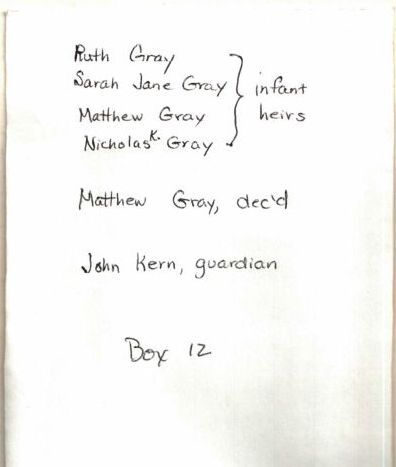 Ruth Gray
Sarah Jane Gray } infant
Matthew Gray heirs
Nicholas K. Gray
Matthew Gray, dec'd
John Kern, guardian
Box 12